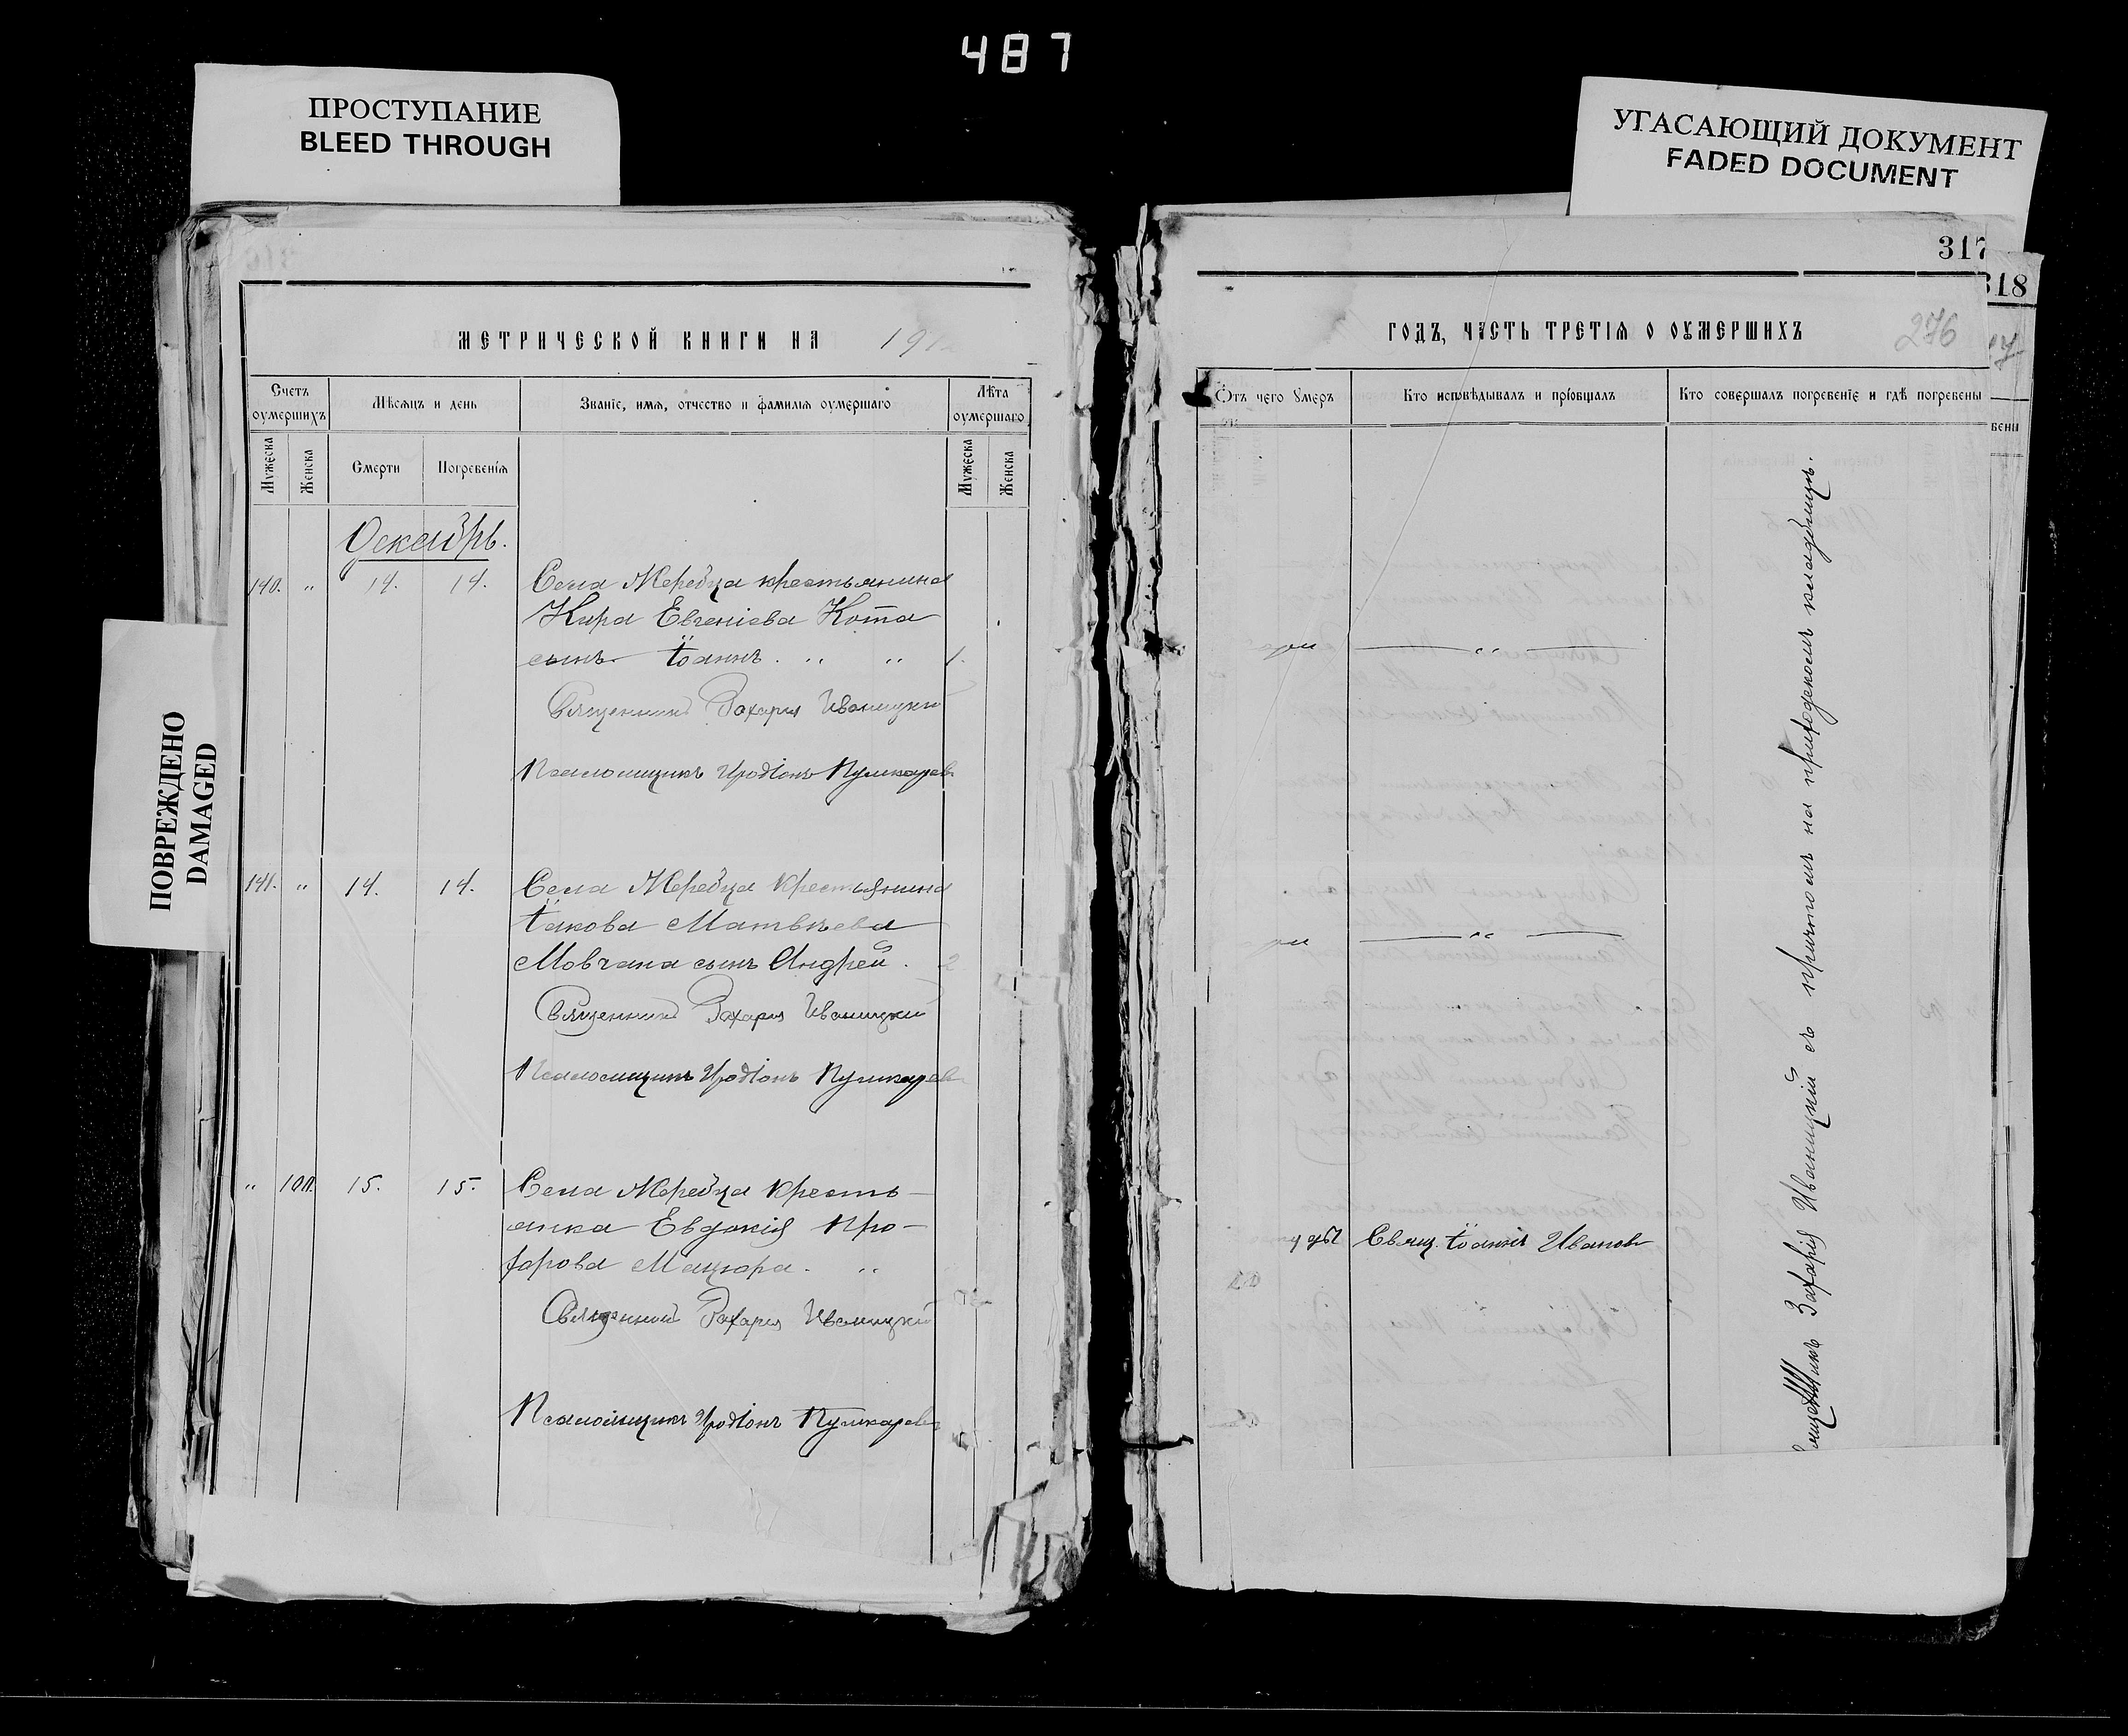 487
ПРОСТУПАНИЕ
BLEED THROUGH
УГАСАЮЩИЙ ДОКУМЕНТ
FADED DOCUMENT
ПОВРЕЖДЕНО
DAMAGED
МЕТРИЧЕСКОЙ КНИГИ НА 191
Счетъ оумершихъ
Мѣсяцъ и день
Званіе, имя, отчество и фамилія оумершаго
Лѣта оумершаго
Мужеска
Женска
Смерти
Погребенія
Мужеска
Женска
Декабрь.
140. " 14. 14. Села Меребца крестьянина
Кира Евгеніева Кота
сынъ Іоаннъ. " " 1.
Священникъ Захарія Иваницкій
Псаломщикъ Иродіонъ Пушкаревъ
141. " 14. 14. Села Меребца крестьянина
Іакова Матвѣева
Мовчана сынъ Андрей. 2
Священникъ Захарія Иваницкій
Псаломщикъ Иродіонъ Пушкаревъ
" 15. 15. Села Меребца кресть-
янка Евдокія Про-
форова Мацюра. "
Священникъ Захарія Иваницкій
Псаломщикъ Иродіонъ Пушкаревъ
317
318
ГОДЪ, ЧАСТЬ ТРЕТІЯ О ОУМЕРШИХЪ
276
Отъ чего умеръ
Кто исповѣдывалъ и пріобщалъ
Кто совершалъ погребеніе и гдѣ погребены
бени
"
"
Свящ. Іоаннъ Ивановъ
Захарія Иваницкій съ причтомъ на приходскомъ кладбищѣ.